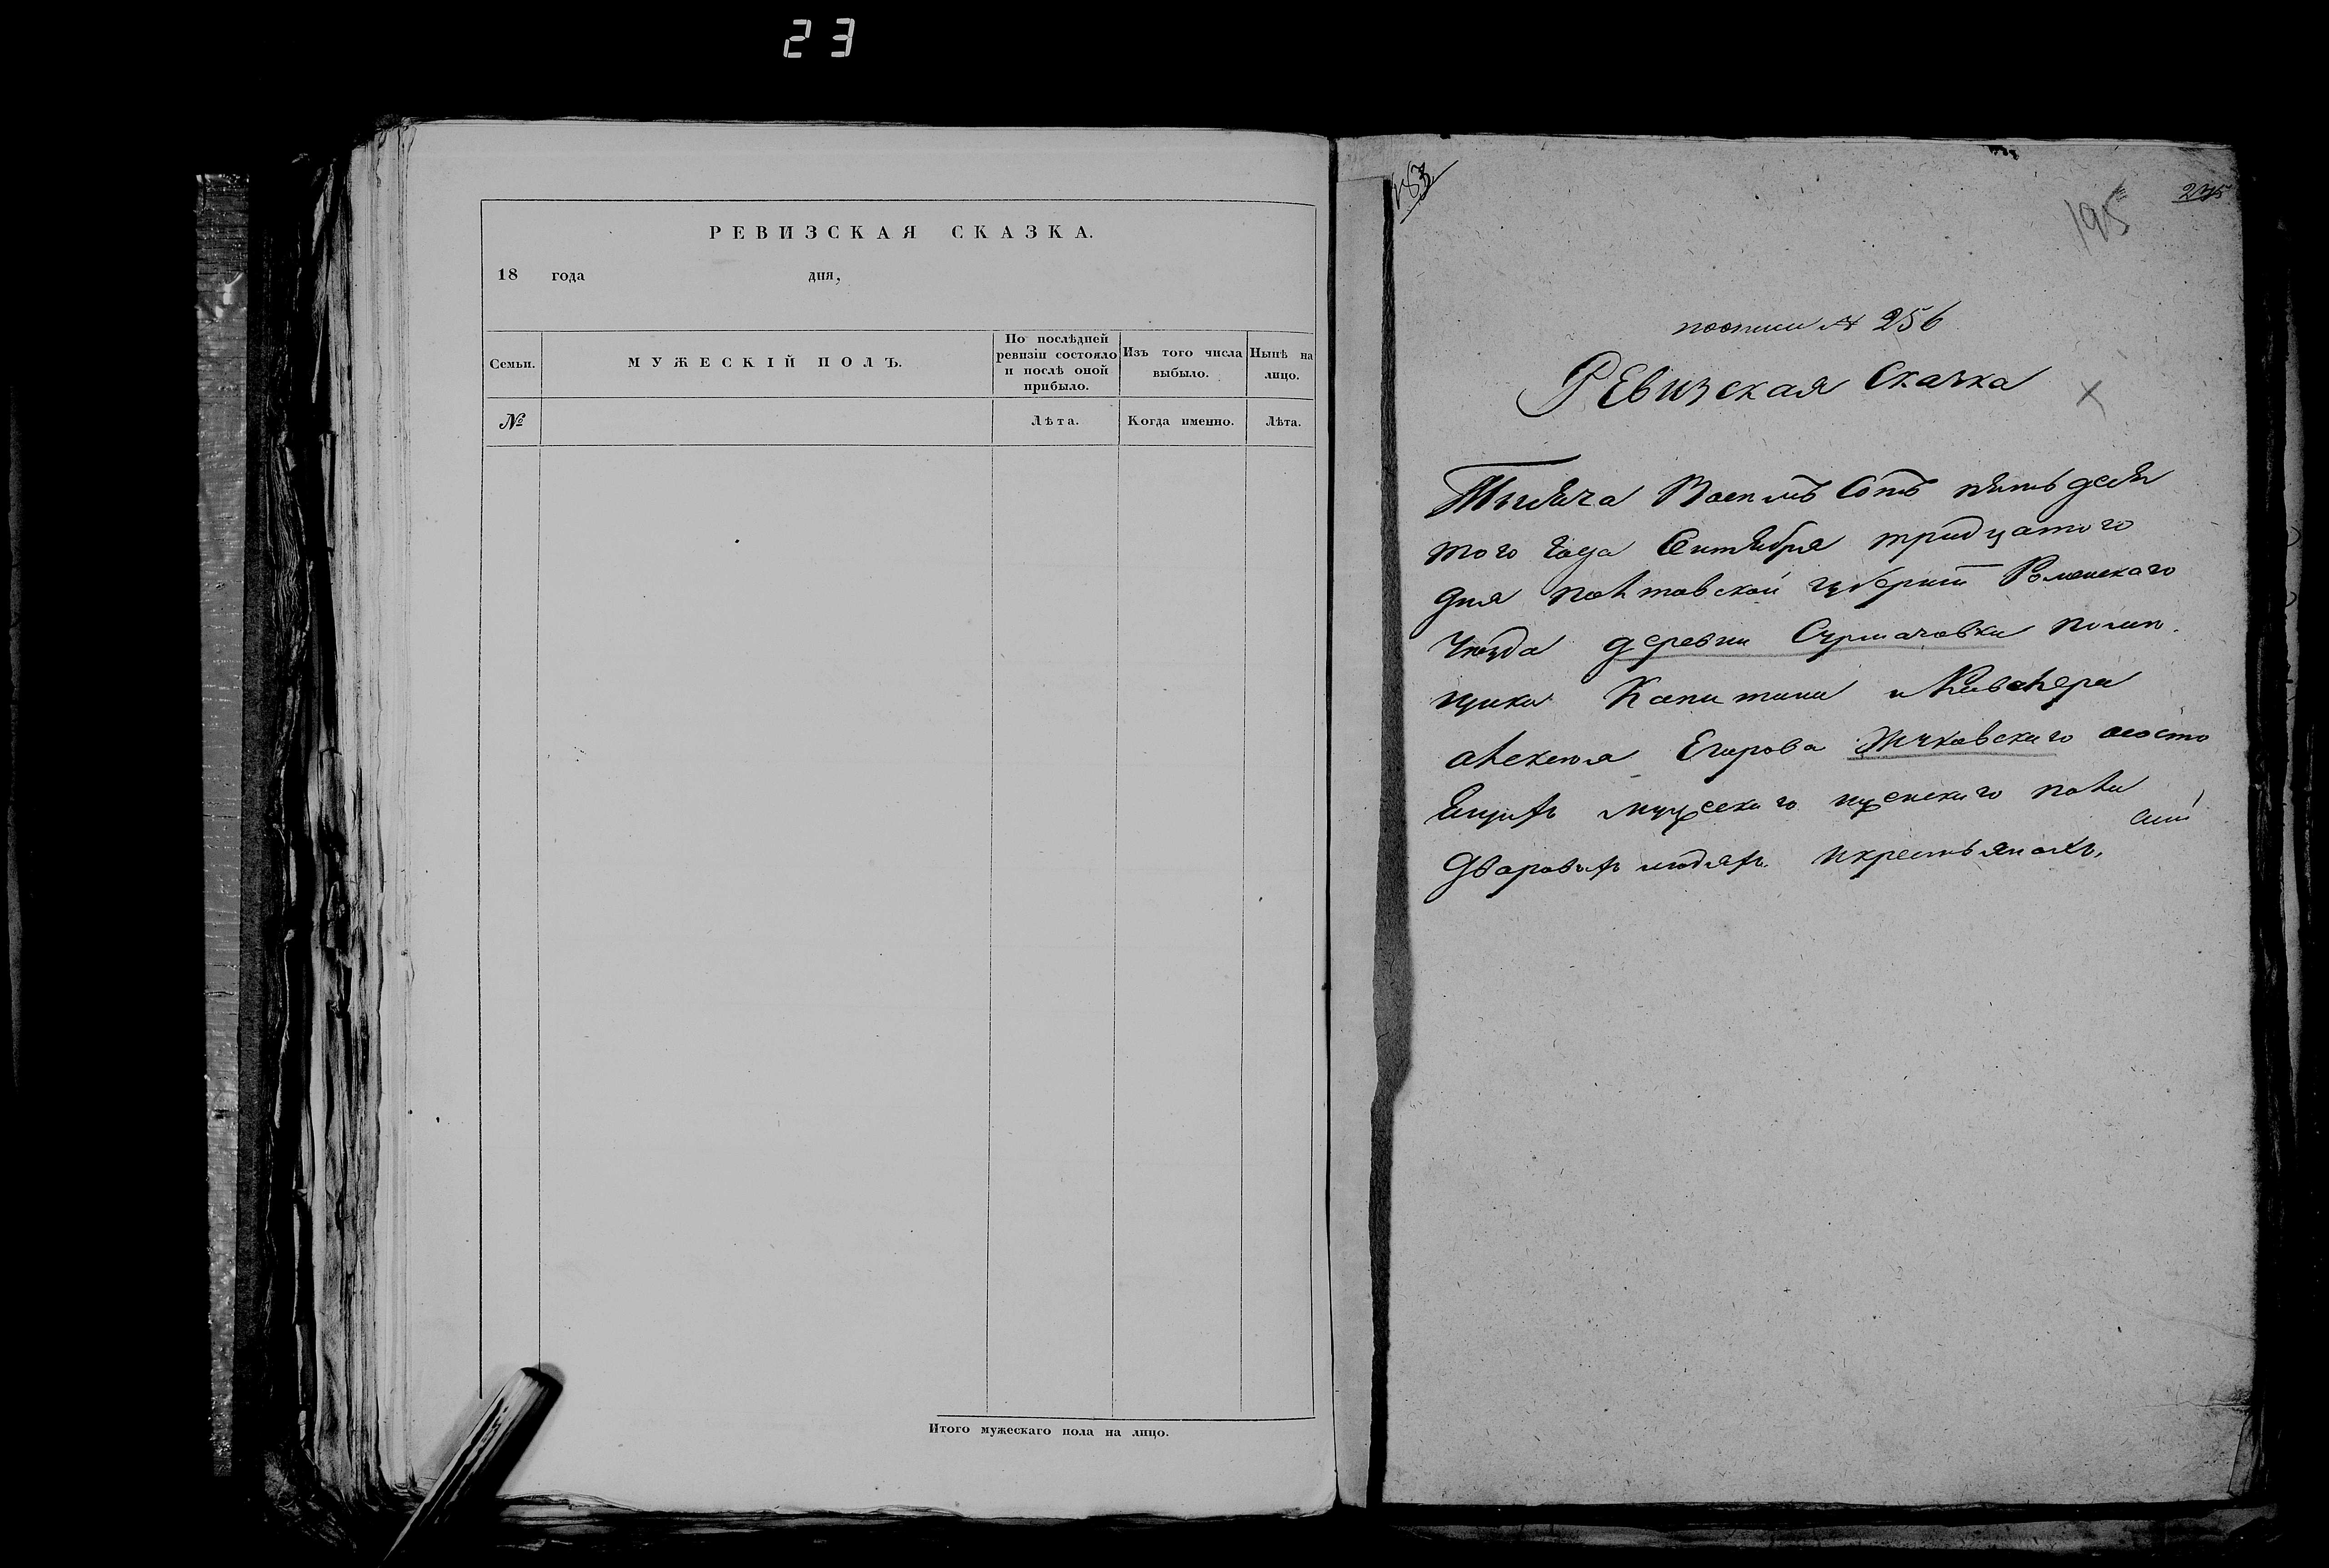 23
РЕВИЗСКАЯ СКАЗКА.
18 года дня,
Семьи.
МУЖЕСКІЙ ПОЛЪ.
По послѣдней ревизіи состояло и послѣ оной прибыло.
Изъ того числа выбыло.
Нынѣ на лицо.
№
Лѣта.
Когда именно.
Лѣта.
Итого мужескаго пола на лицо.
183
195
275
по описи № 256
Ревизская Сказка
Тысяча Восемъ Сотъ пять деся
того года Сентября тридцатого
дня Полтавской губерніи Роменскаго
уезда деревни Сурмачовки помещ
щика Капитана и Кавалера
алексея Егорова сына состо
ящихъ мужескаго и женскаго пола
дворовыхъ людяхъ и крестьянахъ,